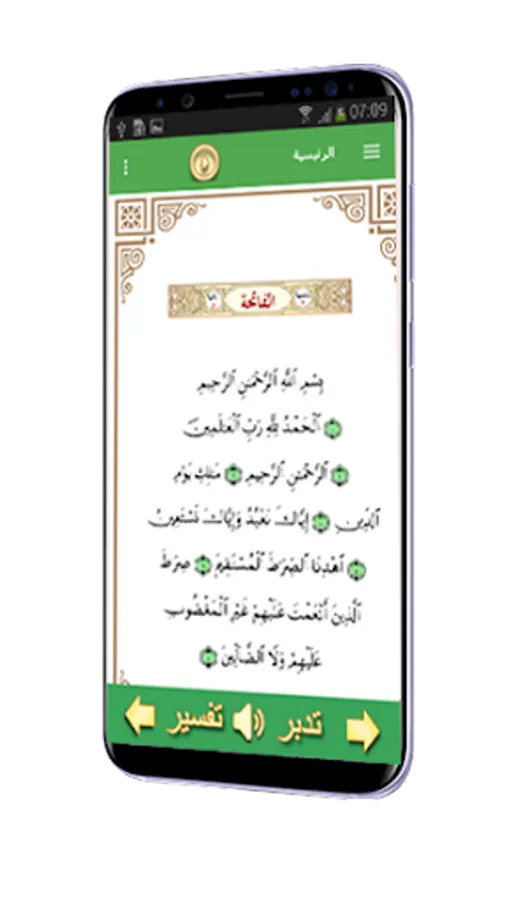 07:09
الرئيسية
الفاتحة
بِسْمِ ٱللَّهِ ٱلرَّحْمَٰنِ ٱلرَّحِيمِ
ٱلْحَمْدُ لِلَّهِ رَبِّ ٱلْعَٰلَمِينَ
ٱلرَّحْمَٰنِ ٱلرَّحِيمِ مَٰلِكِ يَوْمِ
ٱلدِّينِ إِيَّاكَ نَعْبُدُ وَإِيَّاكَ نَسْتَعِينُ
ٱهْدِنَا ٱلصِّرَٰطَ ٱلْمُسْتَقِيمَ صِرَٰطَ
ٱلَّذِينَ أَنْعَمْتَ عَلَيْهِمْ غَيْرِ ٱلْمَغْضُوبِ
عَلَيْهِمْ وَلَا ٱلضَّآلِّينَ
تدبر تفسير